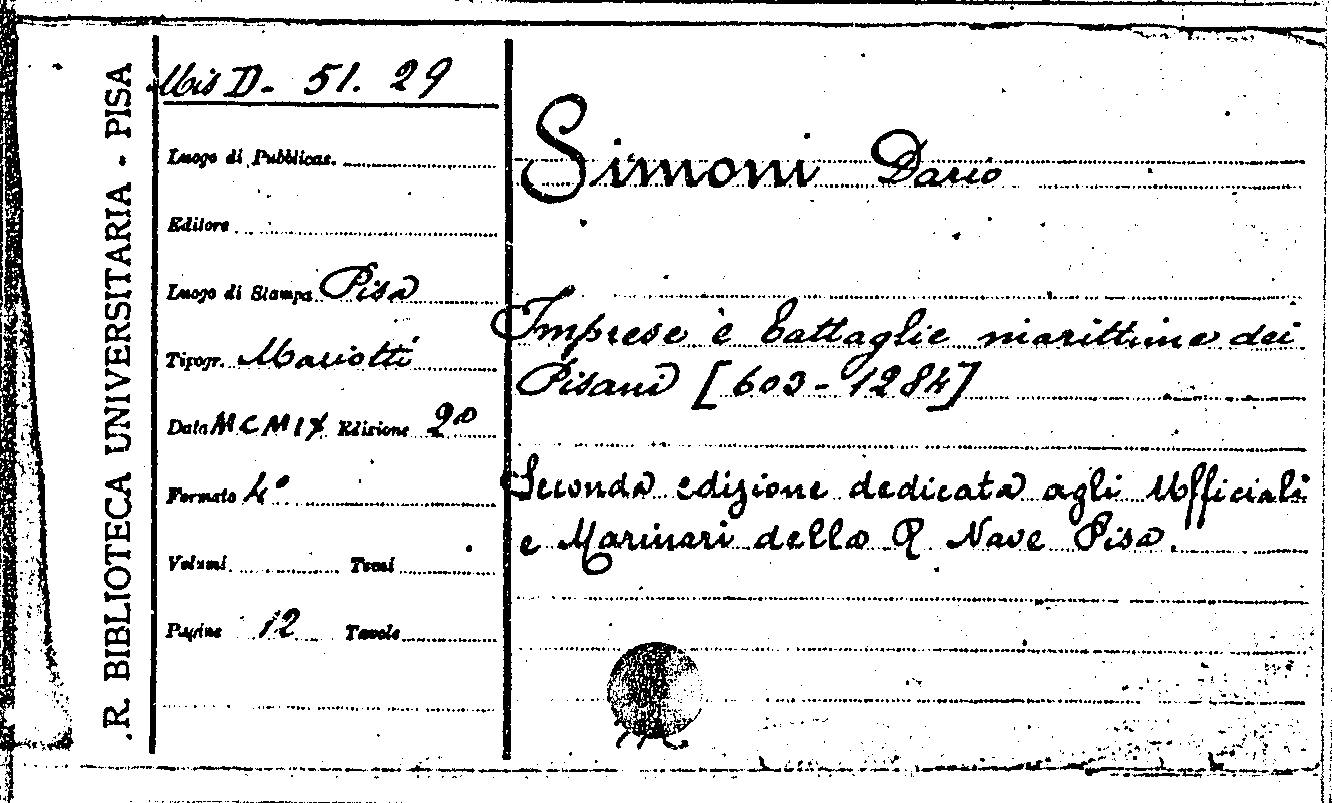 R. BIBLIOTECA UNIVERSITARIA - PISA
Mis D. 51. 29
Luogo di Pubblicas.
Editore
Luogo di Stampa Pisa
Tipogr. Mariotti
Data MCMIX Edizione 2a
Formato 4°
Volumi Tomi
Pagine 12 Tavole
Simoni Dario
Imprese e battaglie marittime dei
Pisani [603-1284]
Seconda edizione dedicata agli Ufficiali
e Marinari della R Nave Pisa.